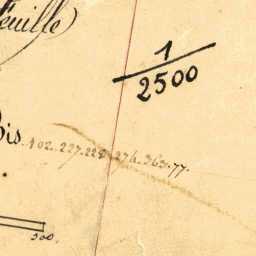 feuille)
1
2500
Bis.
102..227.228..276..363.77.
300.